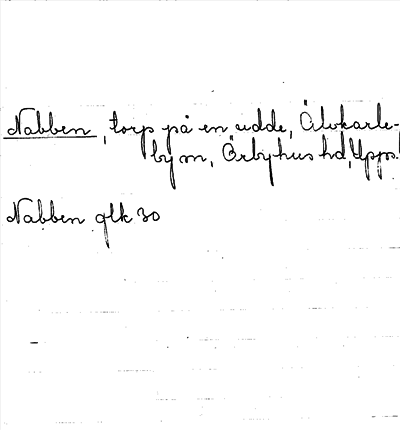 Nabben, torp på en udde, Älvkarle-
by sn, Örbyhus hd, Upps.
Nabben glk 30